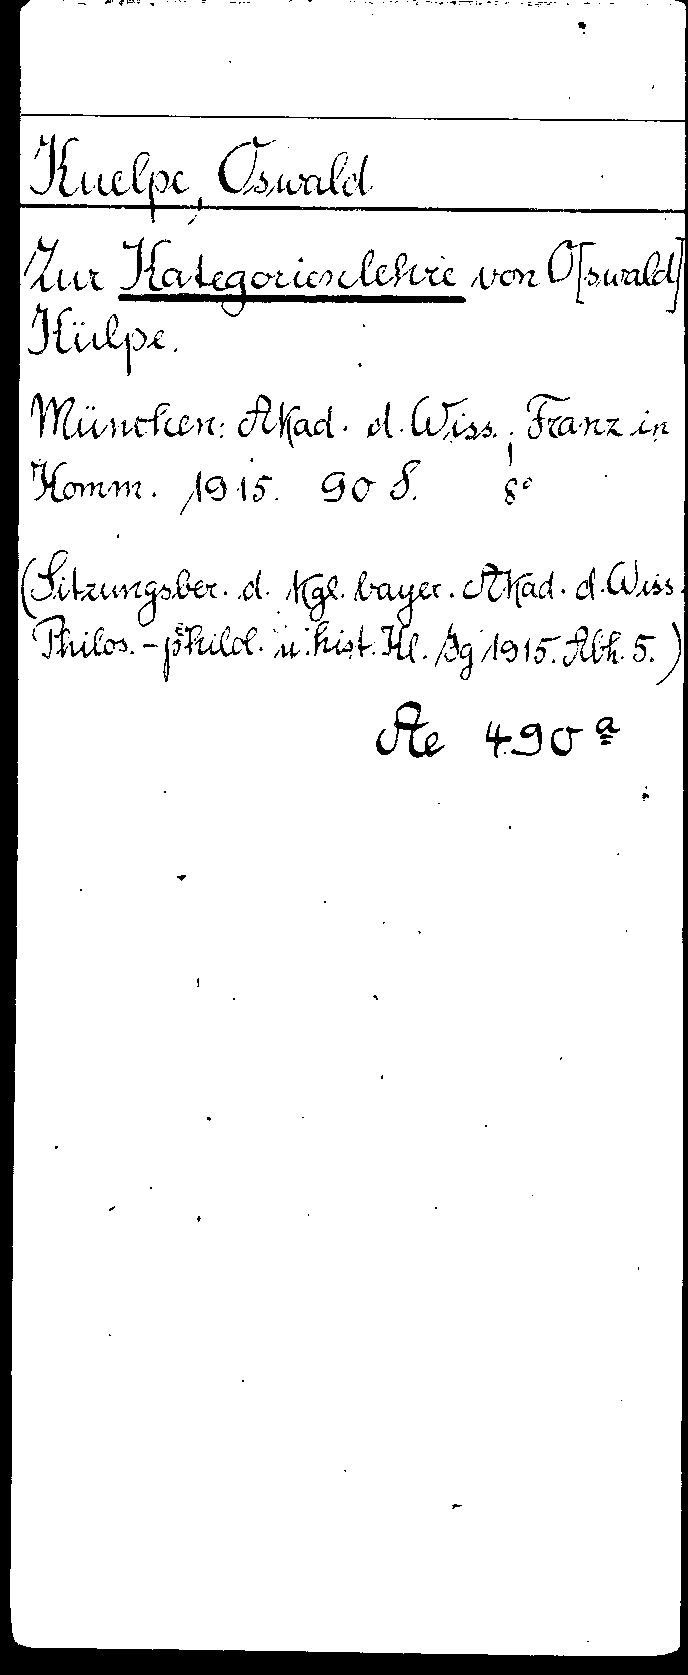 Kuelpe, Oswald
Zur Kategorienlehre von O[swald]
Külpe.
München: Akad. d. Wiss.; Franz in
Komm. 1915. 90 S. 8°
(Sitzungsber. d. kgl. bayer. Akad. d. Wiss.
Philos.-philol. u. hist. Kl. Jg 1915. Abh. 5.)
Ae 490 a